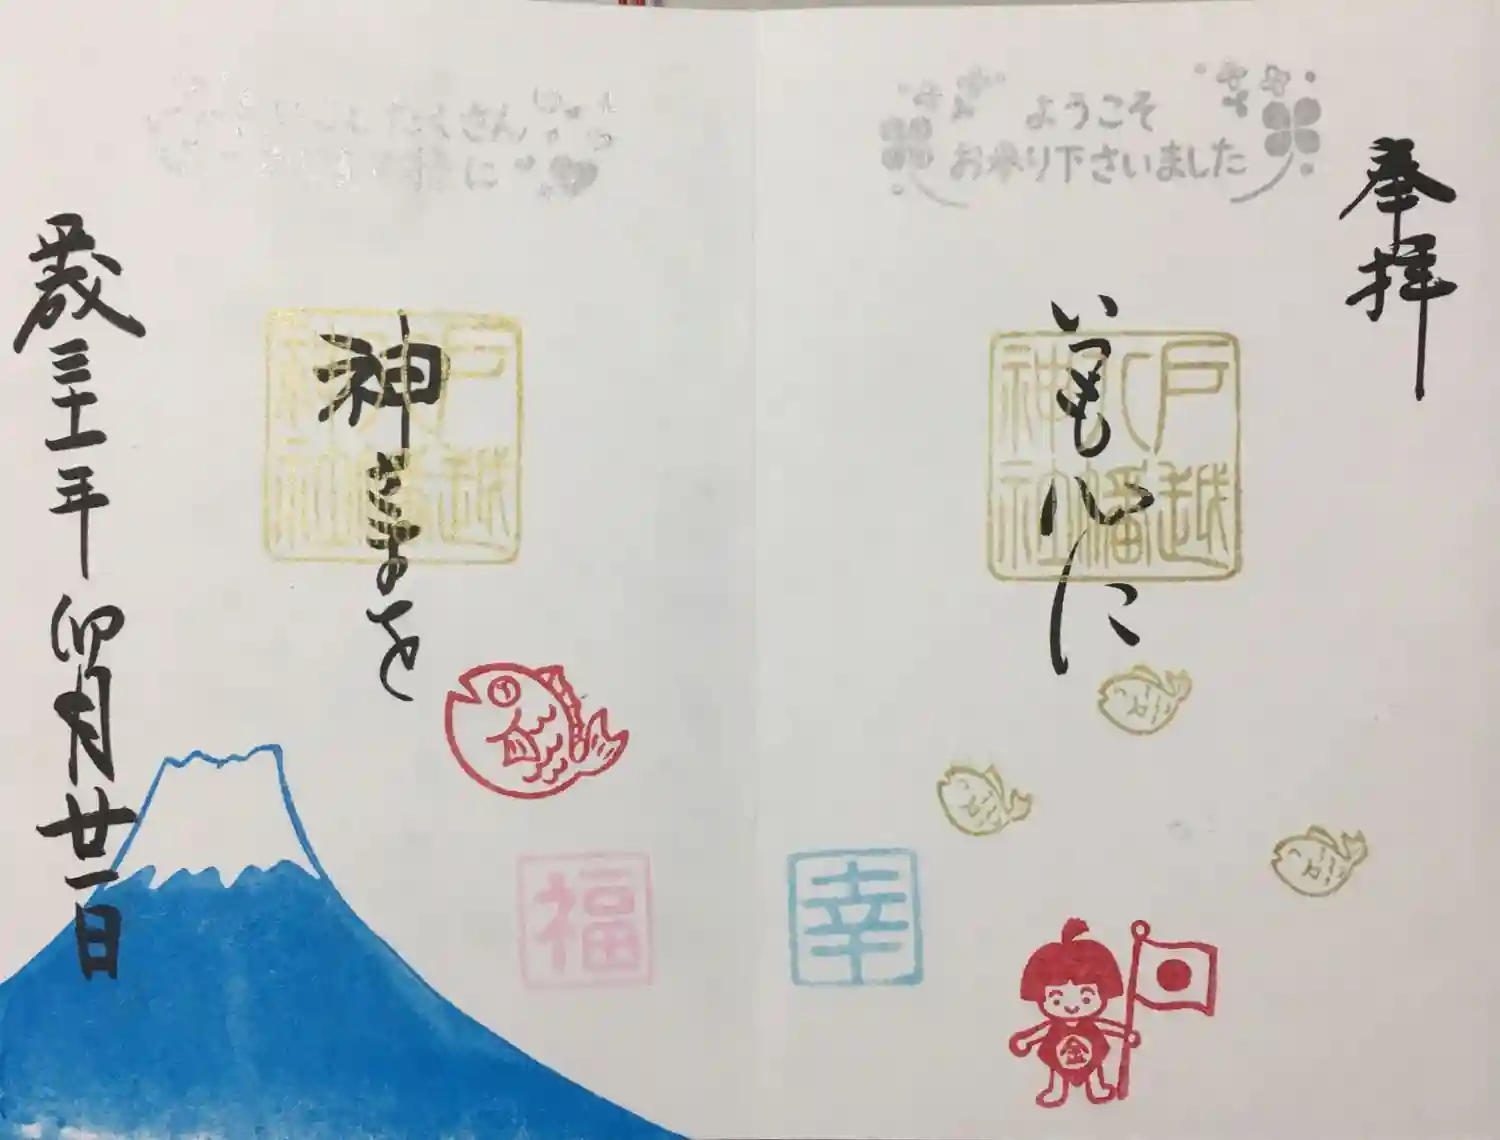 奉拝
ようこそ
お参り下さいました
いつも心に
戸越八幡神社
幸
金
たくさん
に
神さまを
戸越八幡神社
福
平成三十一年卯月廿一日